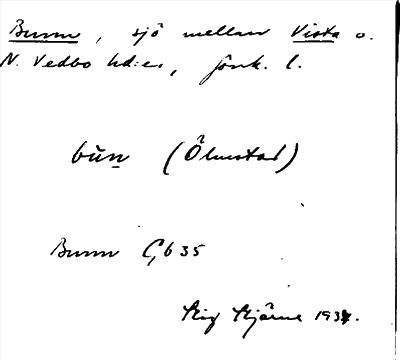 Bunn, sjö mellan Vista o.
N. Vedbo hd:er, Jönk. l.
bŭn̲ (Ölmstad)
Bunn Ç635
Stig Stjärne 1934.